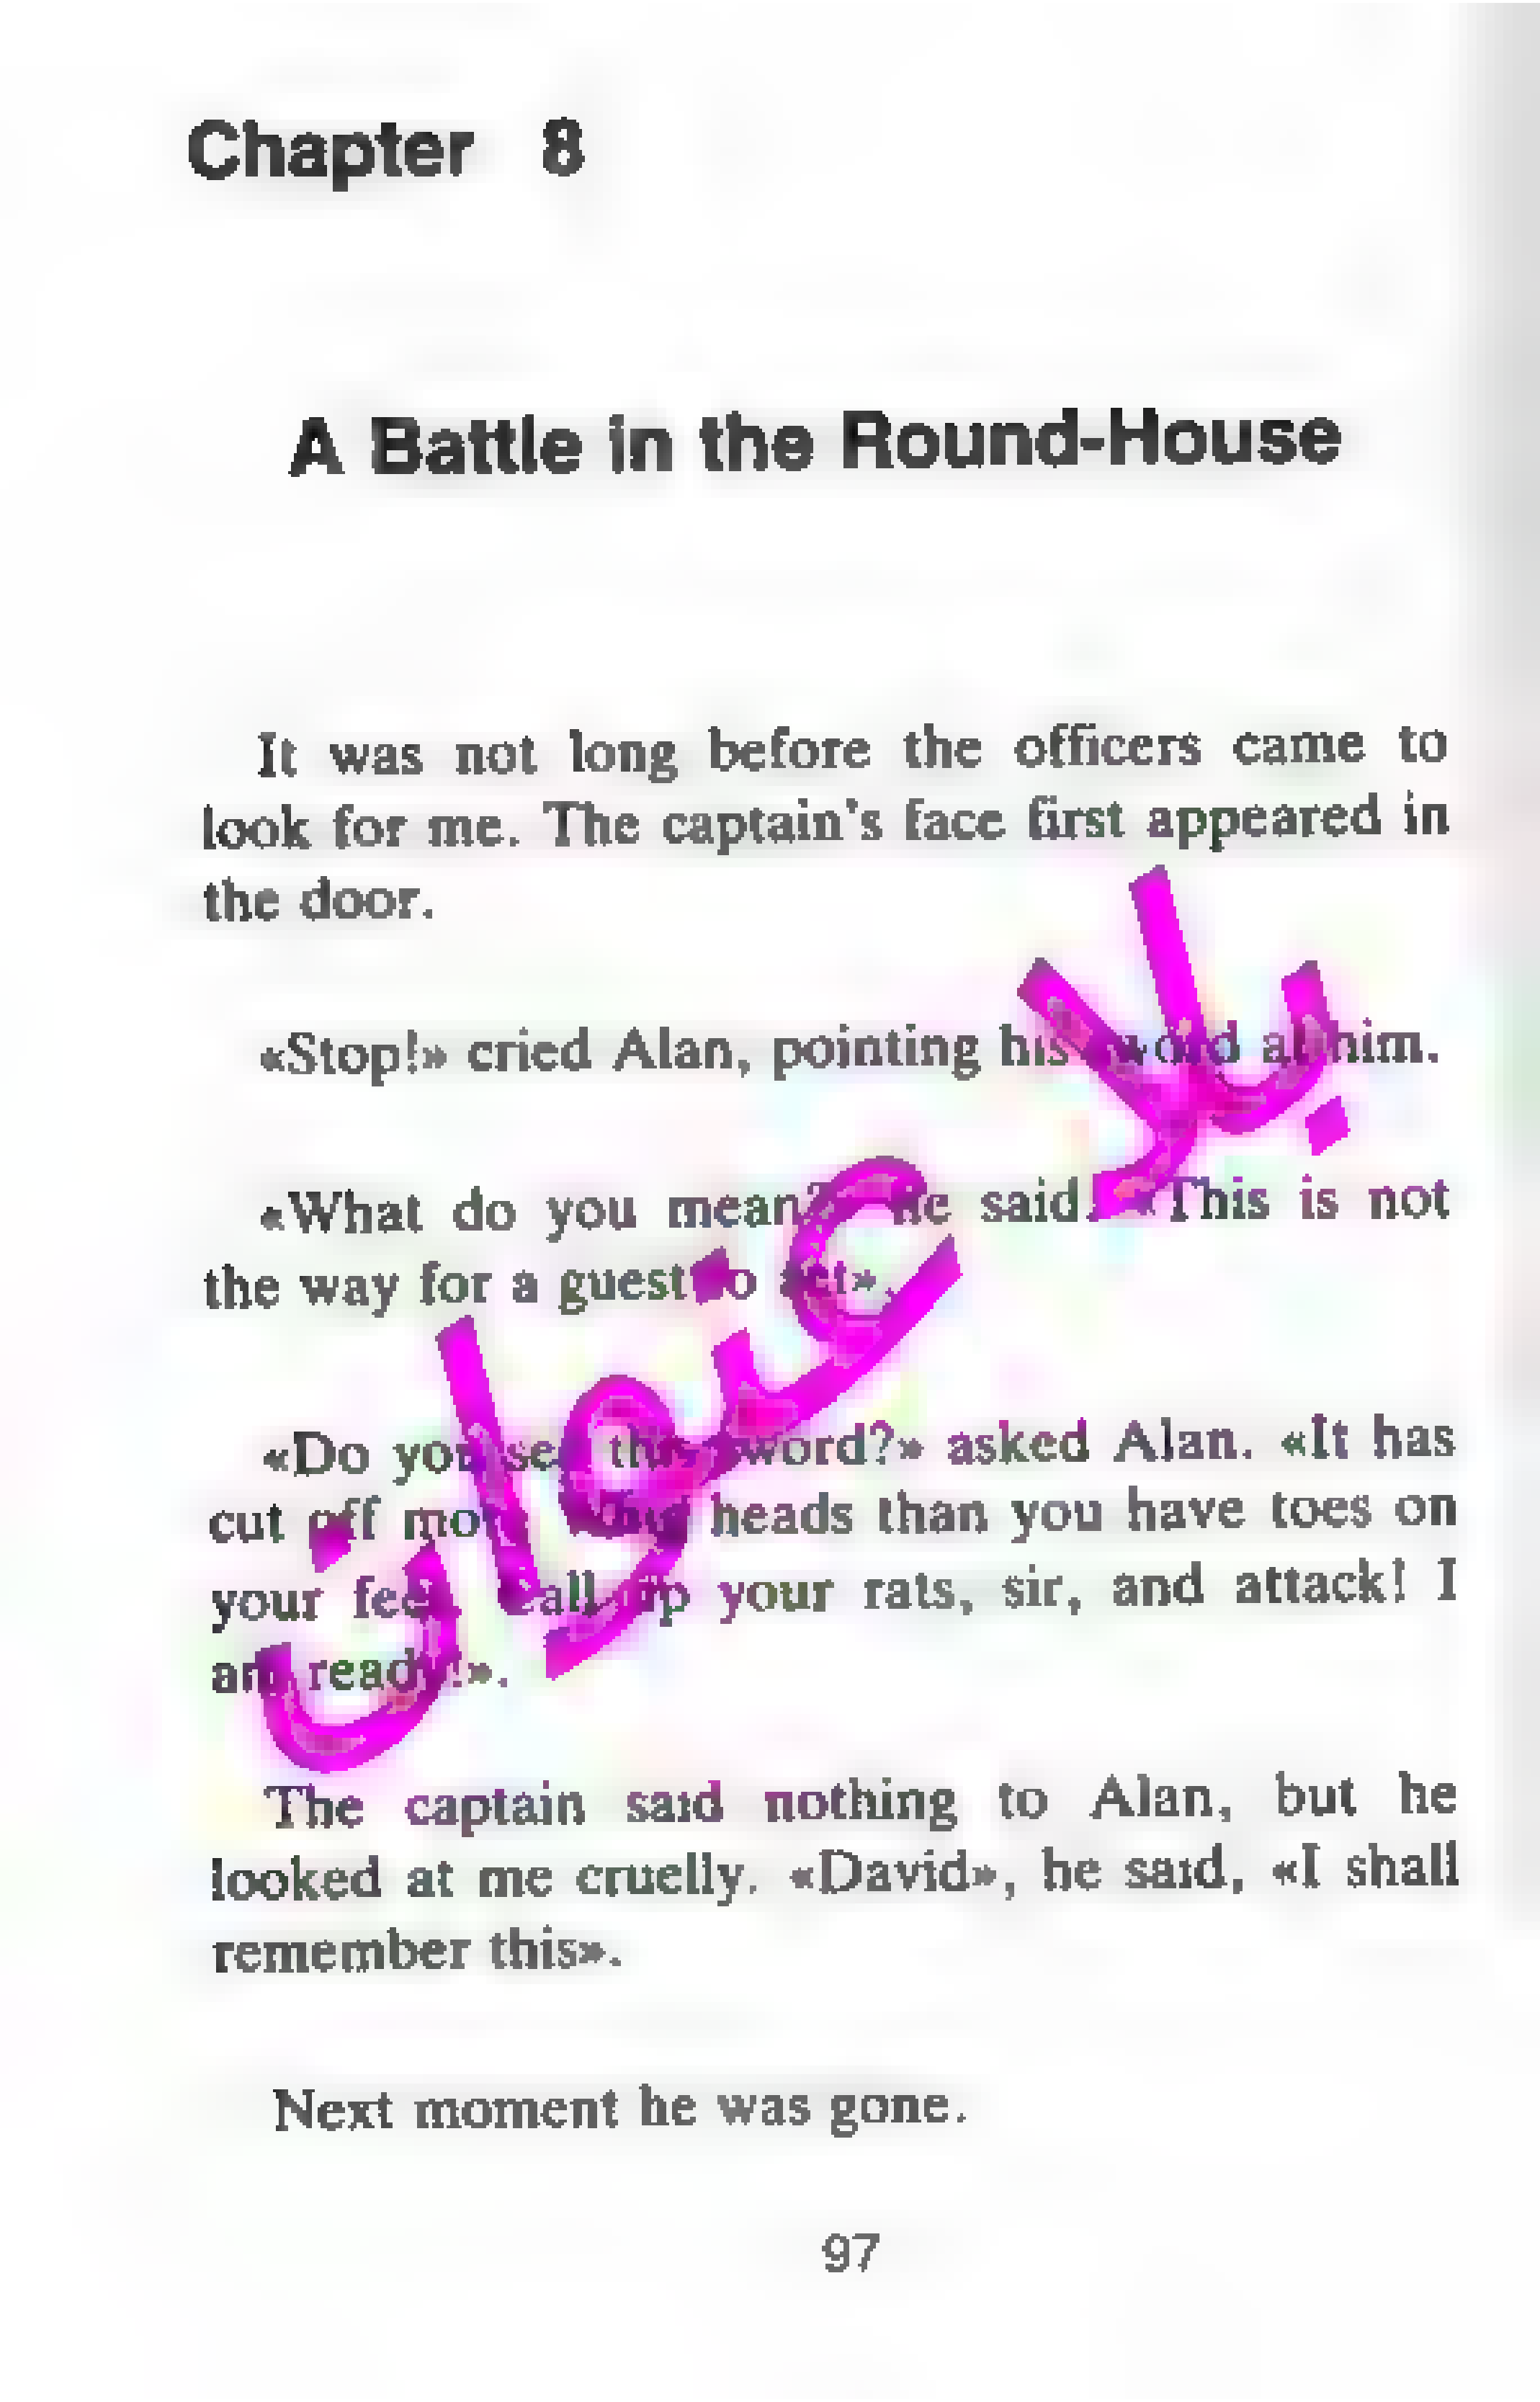 Chapter 8
A Battle in the Round-House
It was not long before the officers came to
look for me. The captain's face first appeared in
the door.
«Stop!» cried Alan, pointing his sword at him.
«What do you mean?» he said. «This is not
the way for a guest to act».
«Do you see this sword?» asked Alan. «It has
cut off more heads than you have toes on
your feet. Call up your rats, sir, and attack! I
am ready!».
The captain said nothing to Alan, but he
looked at me cruelly. «David», he said, «I shall
remember this».
Next moment he was gone.
97
بلا عنوان